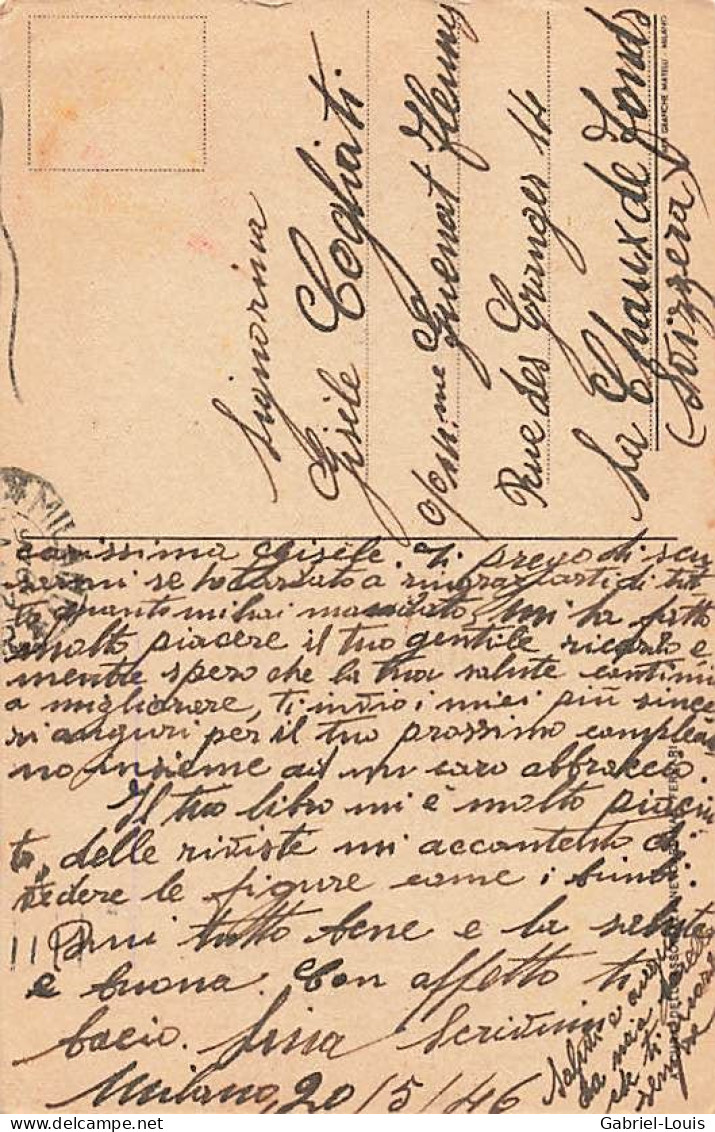 Signorina
Gisele Cogliati
c/o M.me Guenat Fleury
Rue des Granges 14
La Chaux de Fonds
(Svizzera)
GRAFICHE MATELLI - MILANO
carissima Gisele. Ti prego di scu
sarmi se ho tardato a ringraziarti di tut
to quanto mi hai mandato, mi ha fatto
molto piacere il tuo gentile ricordo e
mentre spero che la tua salute continui
a migliorare, ti invio i miei più since
ri auguri per il tuo prossimo complean
no insieme ad un caro abbraccio.
Il tuo libro mi è molto piaciu
to, delle riviste mi accontento di
vedere le figure come i bimbi.
Qui tutto bene e la salute
è buona. Con affetto ti
bacio. Lina
Milano, 20/5/46
Saluti e auguri
da
che ti
sempre
Gabriel-Louis